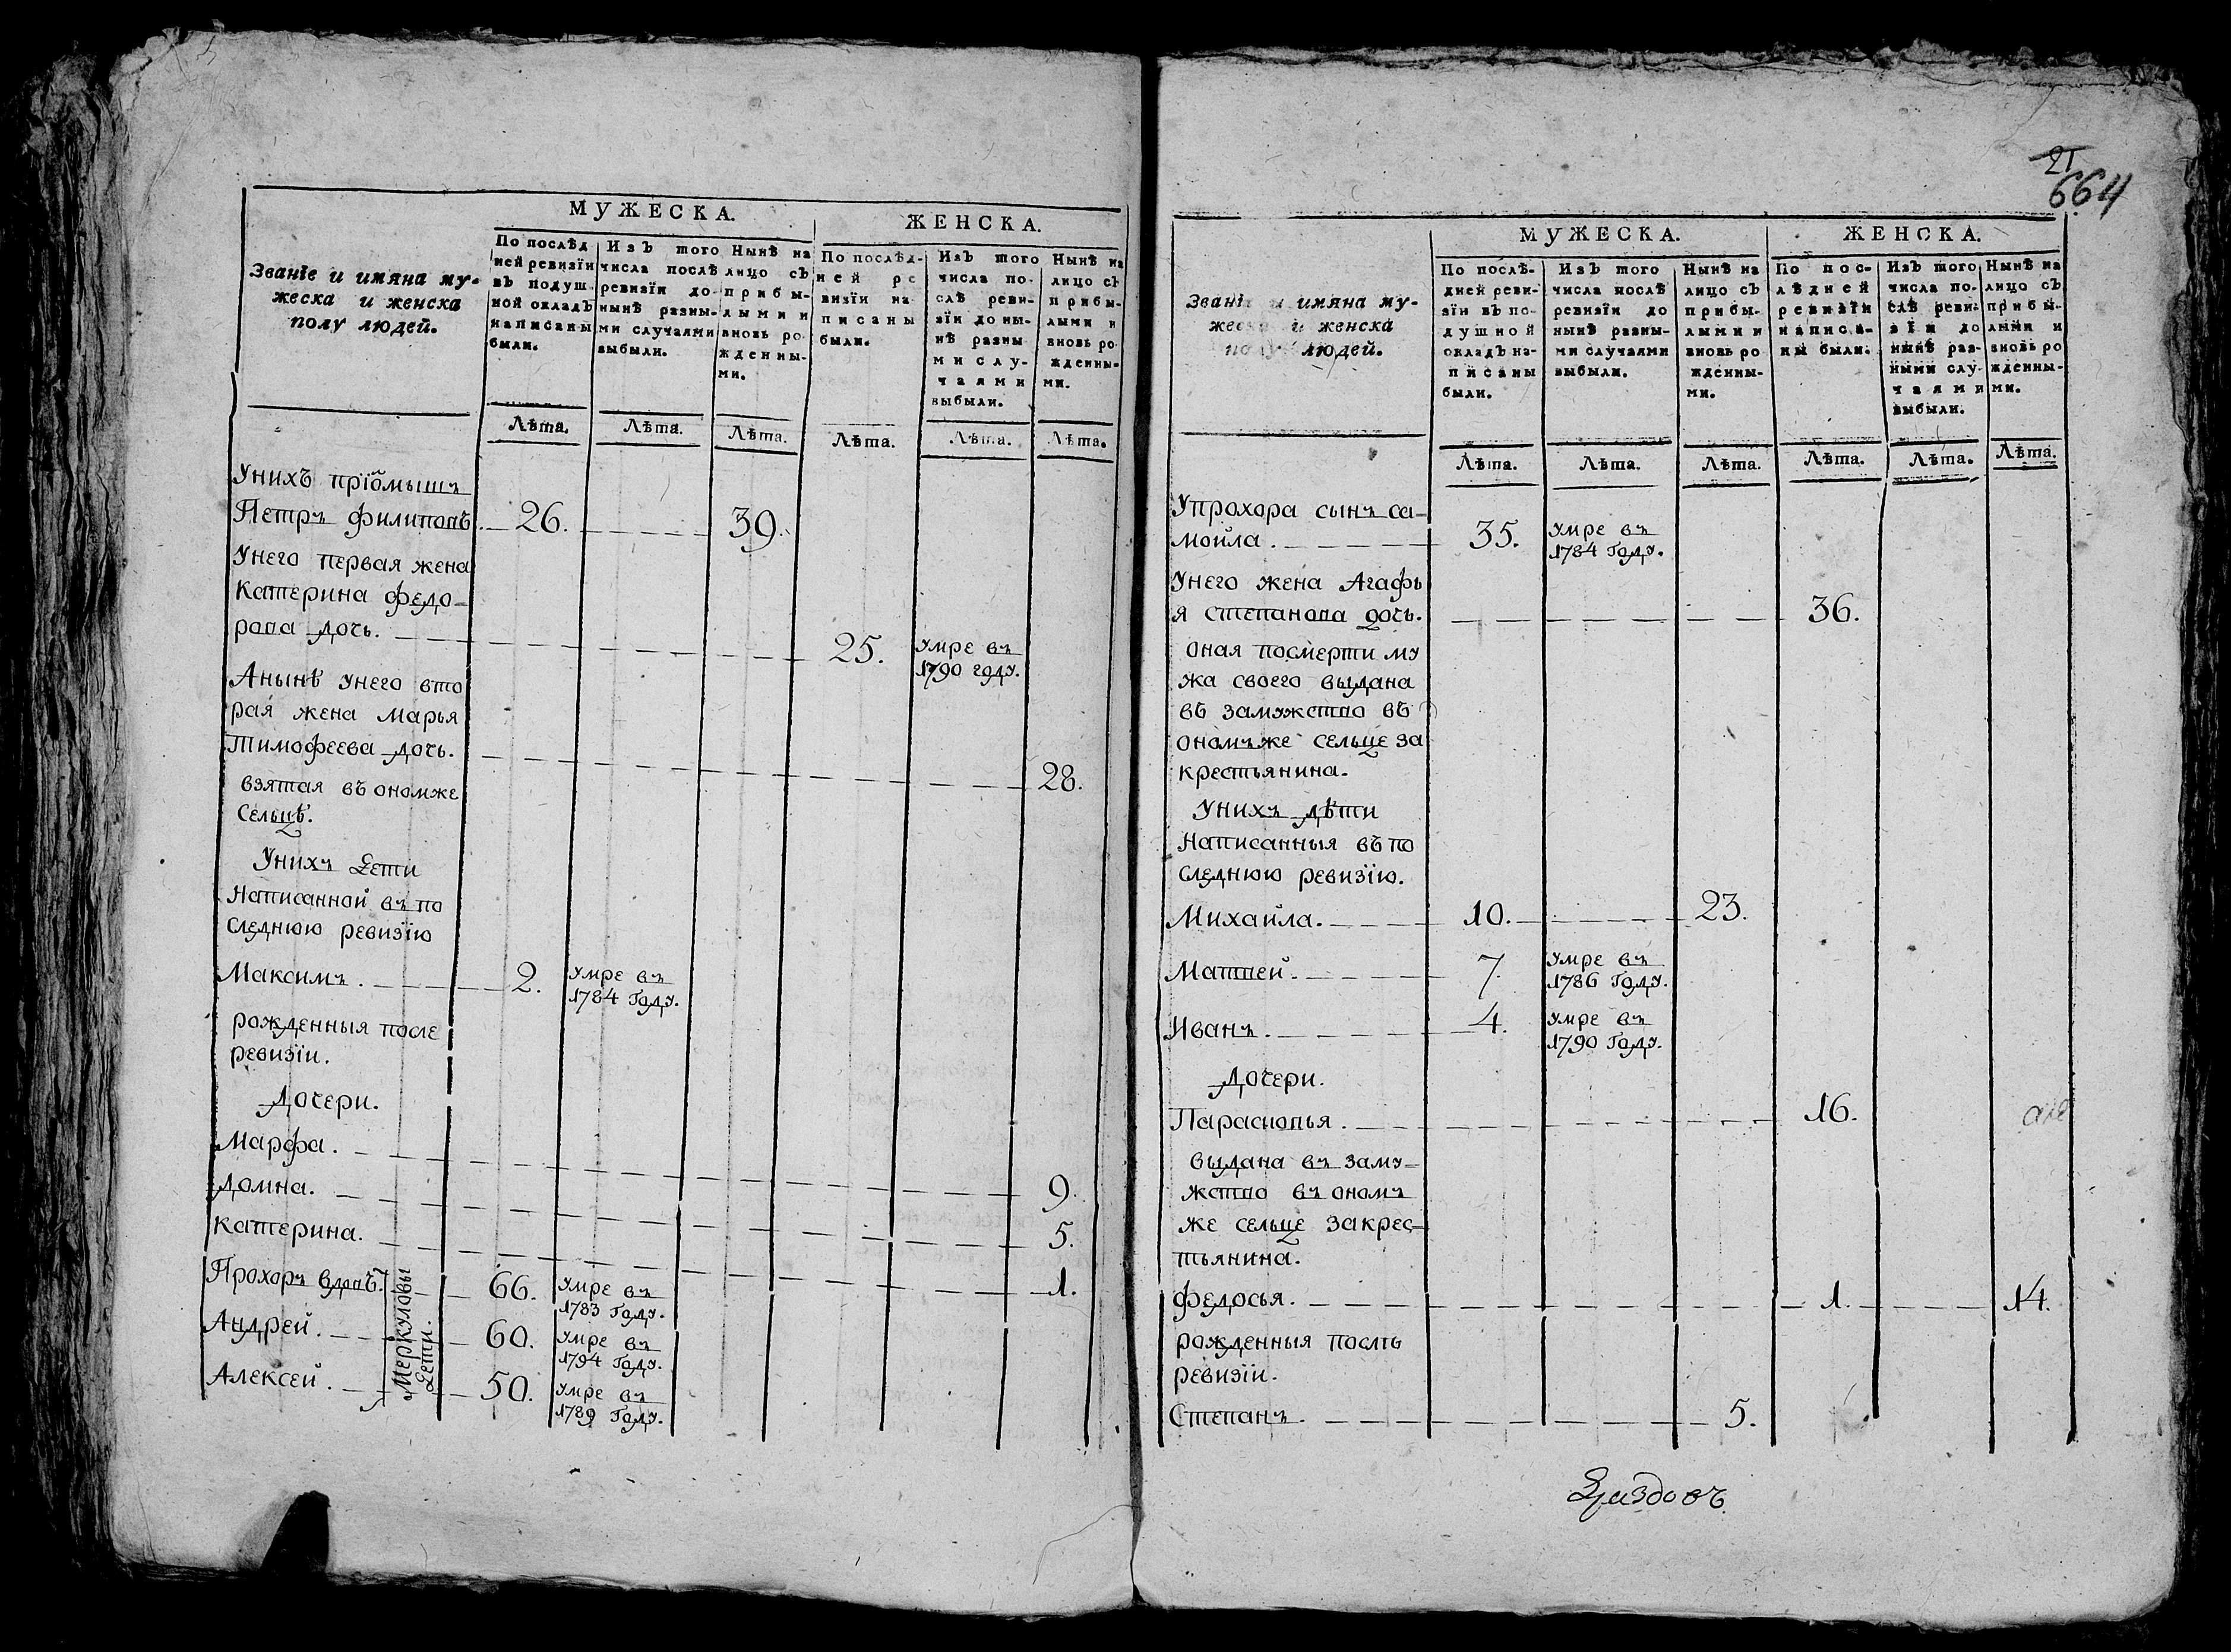 МУЖЕСКА.
ЖЕНСКА.
Званїе и имяна му-
жеска и женска
полу людей.
По послѣд
ней ревизїи
въ подуш-
ной окладъ
написаны
были.
Изъ того
числа послѣ
ревизїи до-
нынѣ разны-
ми случаями
выбыли.
Нынѣ на
лицо съ
прибы-
лыми и
вновь ро
жденны-
ми.
По послѣд-
ней ре
визїи на-
писаны
были.
Изъ того
числа по-
слѣ реви-
зїи до ны-
нѣ разны
ми слу-
чаями
выбыли.
Нынѣ на
лицо съ
прибы-
лыми и
вновь ро-
жденны-
ми.
Лѣта. Лѣта. Лѣта. Лѣта. Лѣта. Лѣта.
Унихъ прїомышъ
Петръ Филиповъ. 26. 39.
Унего первая жена
Катерина Федо-
рова дочь. 25. умре въ
1790 году.
Анынѣ унего вто
рая жена Марья
Тимофеева дочь. 28.
взятая въ ономже
Сельцѣ.
Унихъ Дети
Написанной въ по
следнюю ревизїю
Максимъ. 2. умре въ
1784 году.
рожденныя после
ревизїи.
Дочери.
Марфа. 9.
Домна. 5.
Катерина. 1.
Прохоръ вдовъ. 66. умре въ
1783 Году.
Андрей. 60. умре въ
1794 Году.
Алексей. 50. умре въ
1789 Году.
Меркуловы
Дети.
21
664
МУЖЕСКА.
ЖЕНСКА.
Званїе и имяна му-
жеска и женска
полу людей.
По послѣ-
дней реви-
зїи въ по-
душной
окладъ на-
писаны
были.
Изъ того
числа послѣ
ревизїи до
нынѣ разны-
ми случаями
выбыли.
Нынѣ на
лицо съ
прибы-
лыми и
вновь ро
жденны-
ми.
По пос-
лѣдней
ревизїи
написа-
ны были.
Изъ того
числа по-
слѣ реви-
зїи до
нынѣ раз-
ными слу-
чаями
выбыли.
Нынѣ на
лицо съ
прибы-
лыми и
вновь ро
жденны-
ми.
Лѣта. Лѣта. Лѣта. Лѣта. Лѣта. Лѣта.
Упрохора сынъ са-
мойла. 35. умре въ
1784 Году.
Унего жена Агафь
я Степанова дочь. 36.
оная посмерти му
жа своего выдана
въ замужство въ
ономъже сельце за
крестьянина.
Унихъ дѣти
Написанныя въ по
следнюю ревизїю.
Михайла. 10. 23.
Матвей. 7. умре въ
1786 Году.
Иванъ. 4. умре въ
1790 Году.
Дочери.
Парасковья. 16.
выдана въ заму-
жство въ ономъ
же сельце закрес-
тьянина.
Федосья. 1. 14.
рожденныя послѣ
ревизїи.
Степанъ. 5.